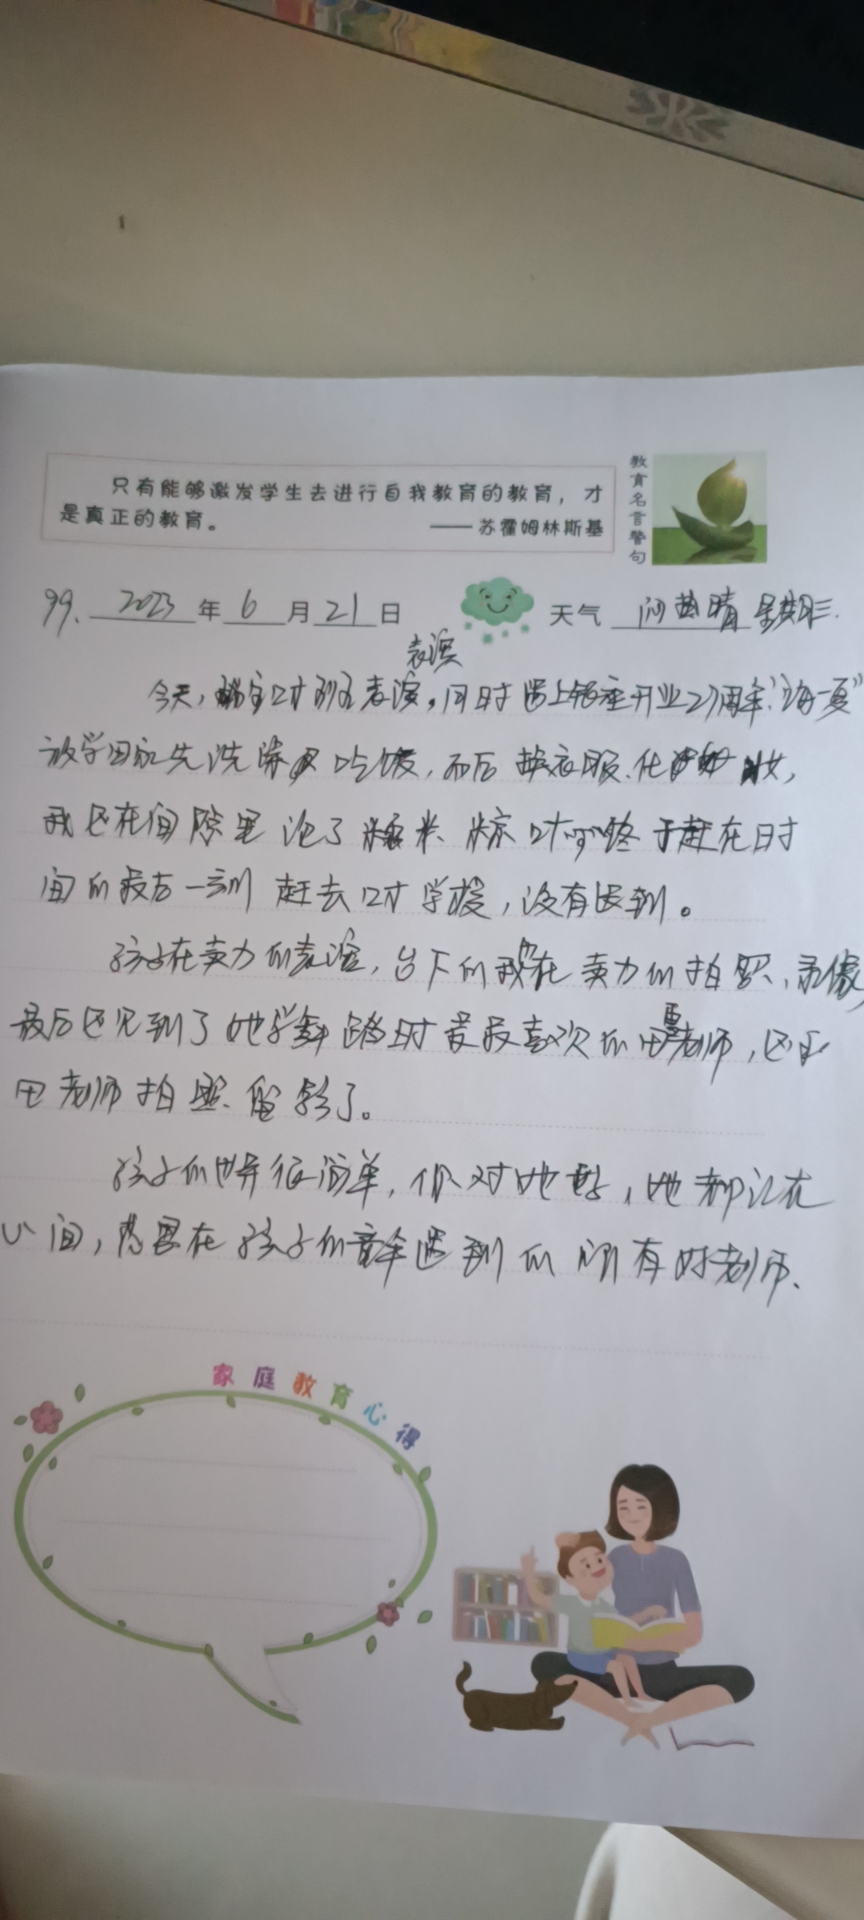 只有能够激发学生去进行自我教育的教育，才
是真正的教育。
——苏霍姆林斯基
教育名言警句
99. 2023年6月21日 天气 闷热晴 星期三.
表演
今天， 表演。同时遇上银座开业27周年
放学回家先洗澡 吃饭，而后换衣服.化 妆，
我还在间隙里泡了糯米. 终于赶在时
间的最后一刻赶去 学校，没有迟到。
孩子在卖力的表演，台下的我在卖力的拍照、录像
最后还见到了她学舞蹈时最最喜欢的田老师，还和
田老师拍照.留影了。
孩子的世界很简单，你对她好，她都记在
心间，感恩在孩子的童年遇到的所有好老师.
家庭教育心得